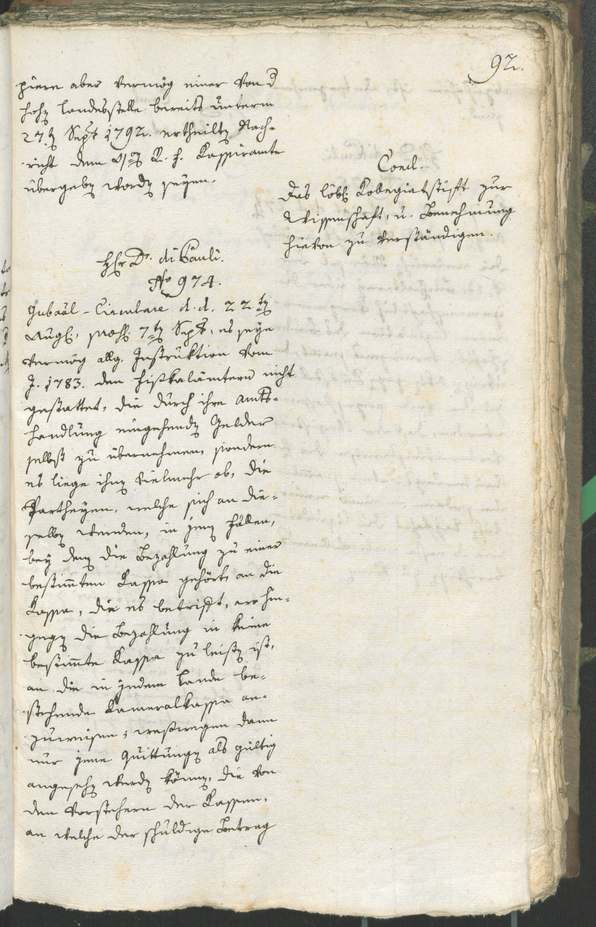 92.
piere aber vermög einer von d
hohen Landesstelle bereits unterm
27ten Sept 1792. ertheilten Nach-
richt dem K. K. Kassieramte
übergeben worden seyen.
Concl.
Das löbl. Kolegiatstift zur
Wissenschaft, u. Benehmung
hievon zu verständigen.
Hr Dr. di Pauli.
No 974.
Gubäal-Circulare d. d. 22ten
Augt, 7ten Sept, es seye
vermög allg. Instruktion vom
J. 1783. den Fiskalämtern nicht
gestattet, die durch ihre Amts-
handlung eingehenden Gelder
selbst zu übernehmen, sondern
es liege ihnen vielmehr ob, die
Partheyen, welche sich an die-
selben wenden, in jenen Fällen,
bey denen die Bezahlung zu einer
bestimmten Kassa gehört, an die
Kassa, die es betrifft, wo hin-
gegen die Bezahlung in keine
bestimmte Kassa zu leisten ist,
an die in jedem Lande be-
stehende Kameralkassa an-
zuweisen; weßwegen dann
nur jene Quittungen als gültig
angesehen werden können, die von
den Vorstehern der Kassen,
an welche der schuldige Betrag